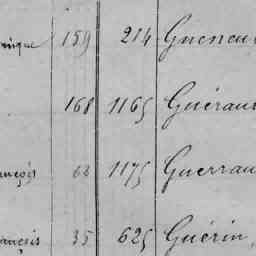 nique 159 214 Gueneu
168 1165 Guérau
ançois 62 1175 Guerrau
ançois 35 625 Guérin,